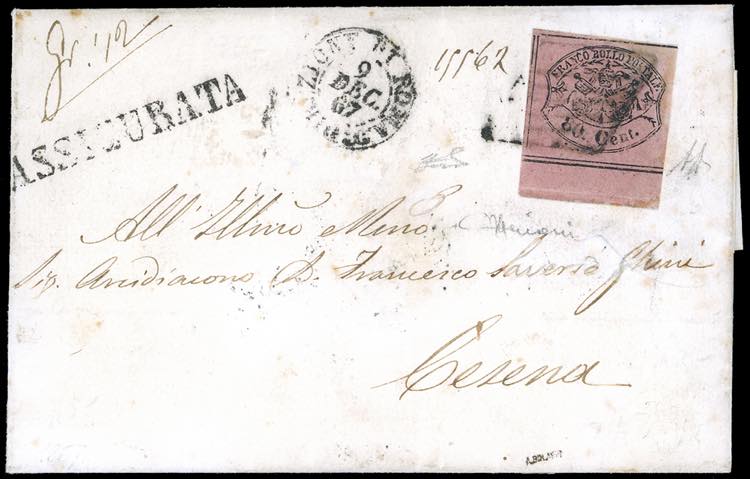 Gr. 12
ASSICURATA
DIREZIONE DI ROMA
9
DEC.
67
15562
FRANCO BOLLO POSTALE
80. Cent.
All' Illmo Rmo
Sig. Arcidiacono D. Francesco Saverio Ghini
Cesena
A.BOLAFFI